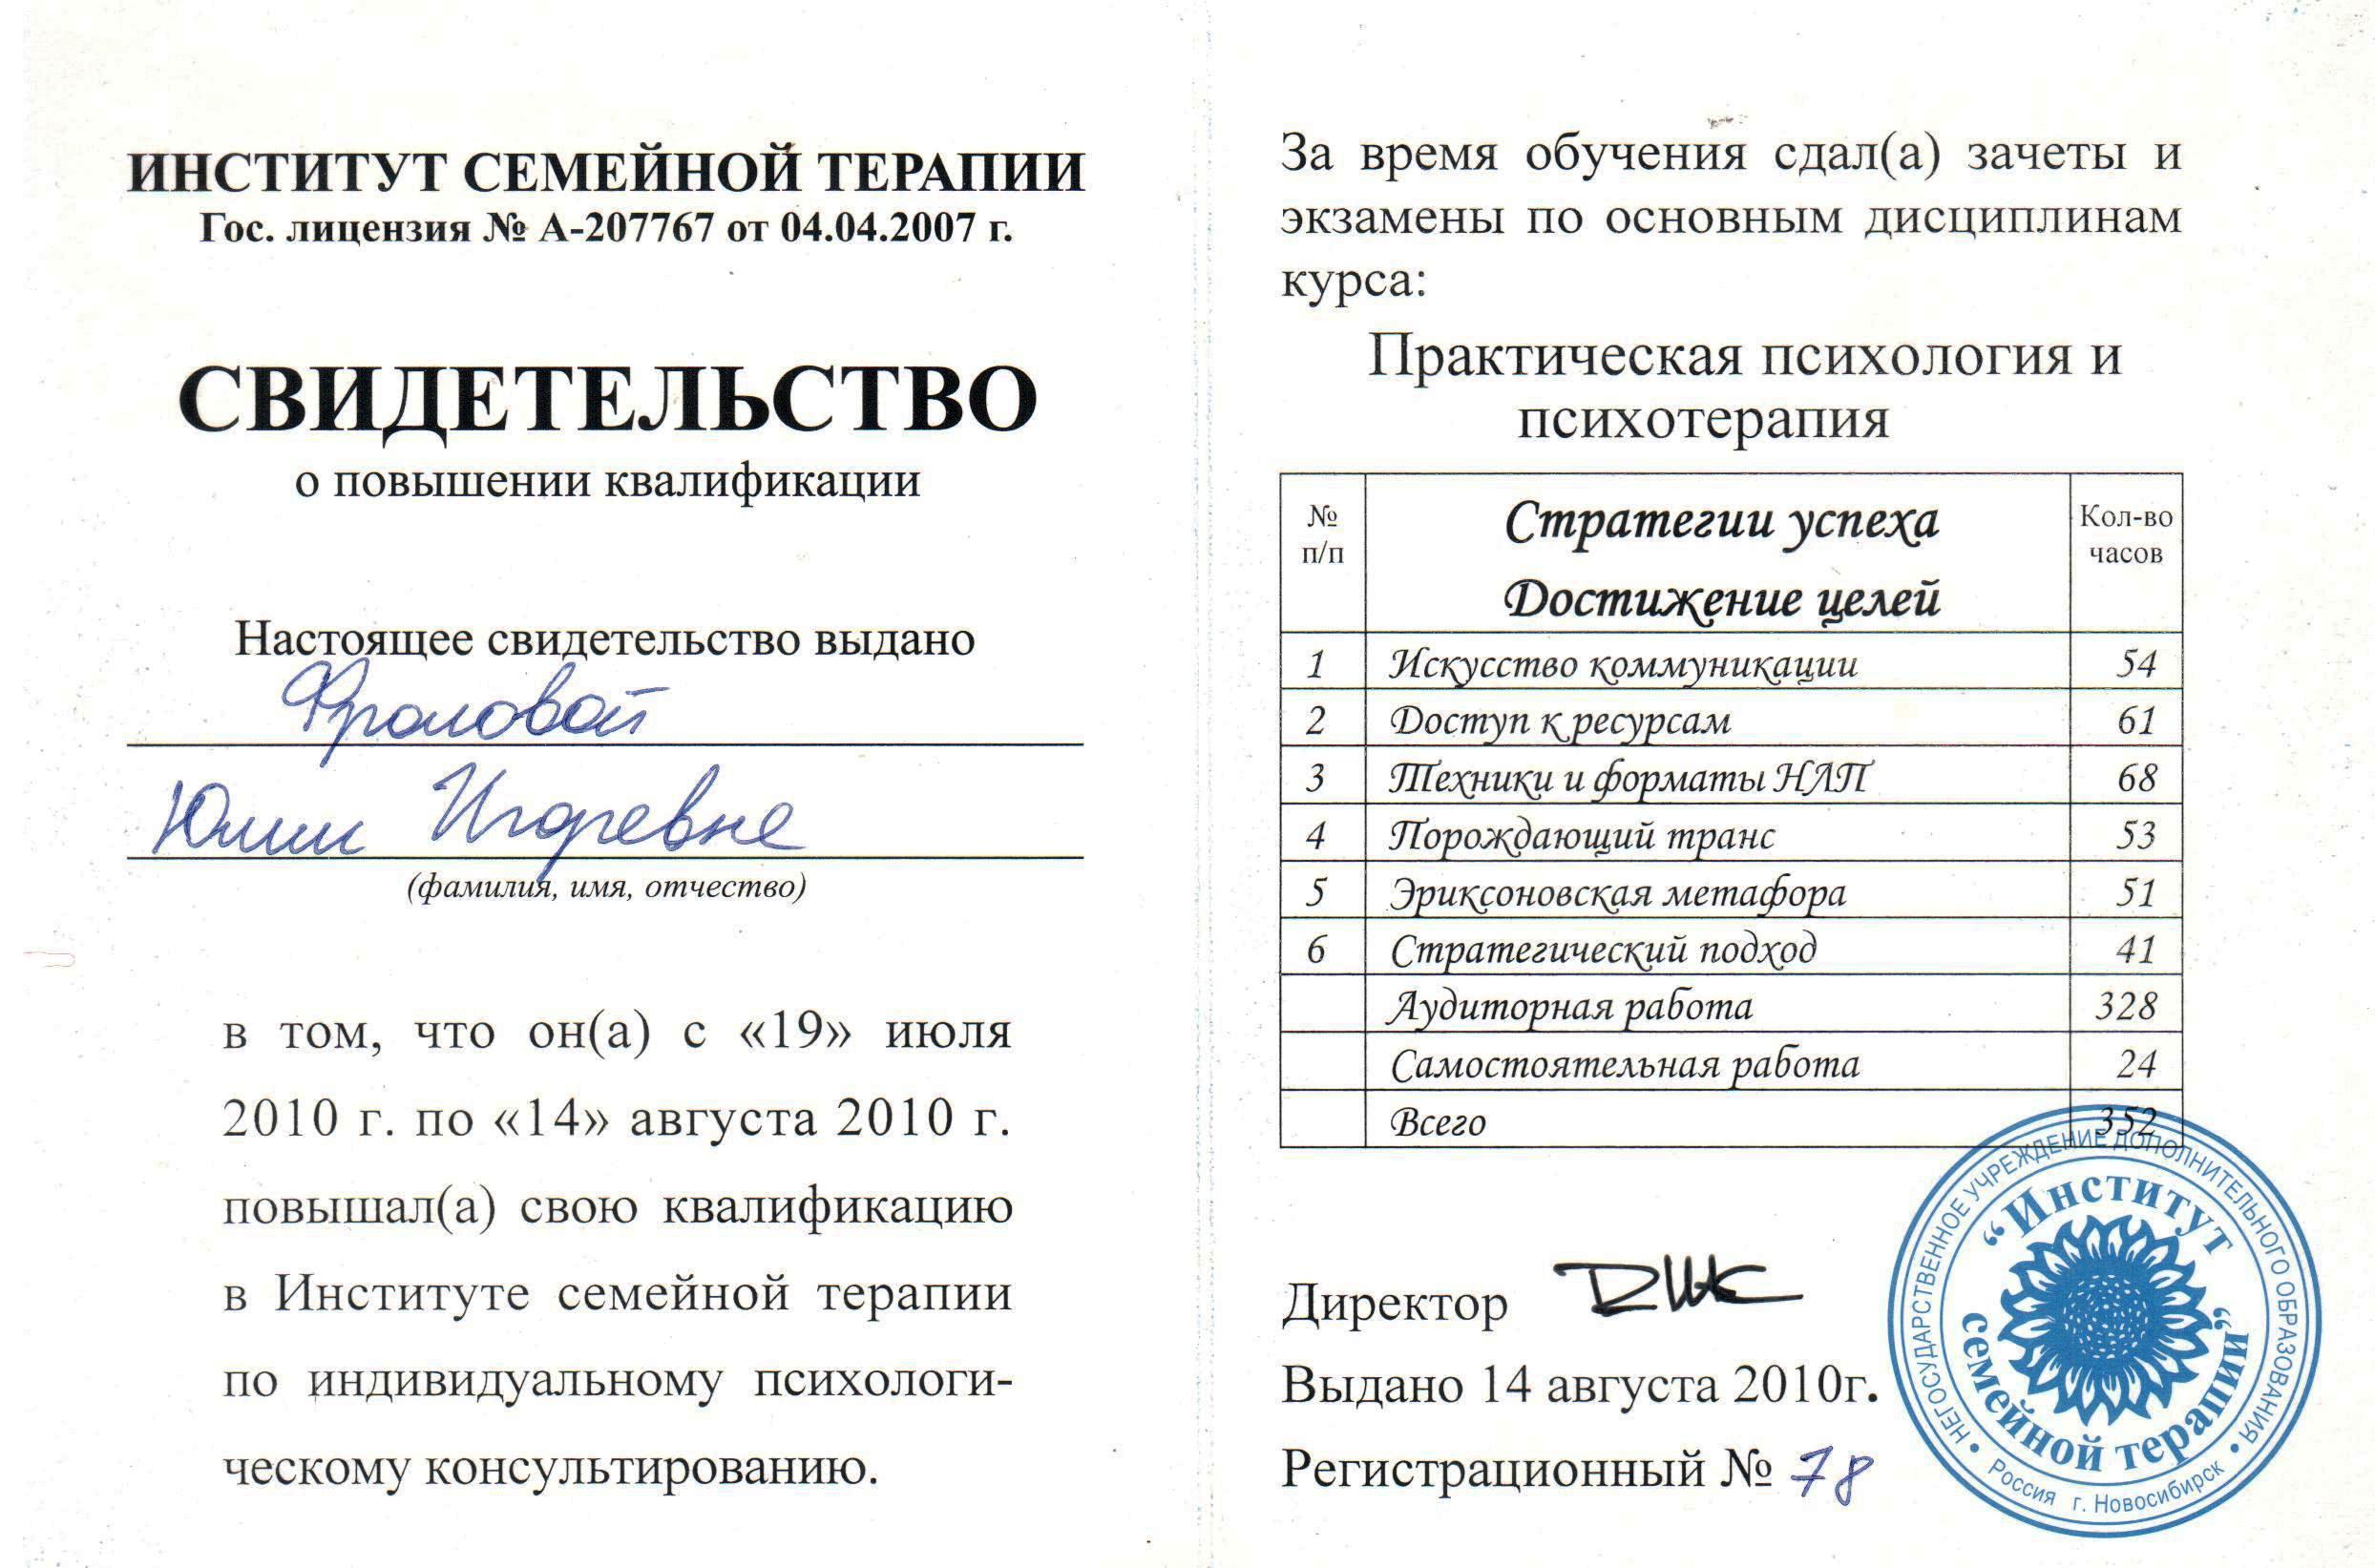 ИНСТИТУТ СЕМЕЙНОЙ ТЕРАПИИ
Гос. лицензия № А-207767 от 04.04.2007 г.
СВИДЕТЕЛЬСТВО
о повышении квалификации
Настоящее свидетельство выдано
Фроловой
Юлии Игоревне
(фамилия, имя, отчество)
в том, что он(а) с «19» июля
2010 г. по «14» августа 2010 г.
повышал(а) свою квалификацию
в Институте семейной терапии
по индивидуальному психологи-
ческому консультированию.
За время обучения сдал(а) зачеты и
экзамены по основным дисциплинам
курса:
Практическая психология и
психотерапия
№ п/п Стратегии успеха Достижение целей Кол-во часов
1 Искусство коммуникации 54
2 Доступ к ресурсам 61
3 Техники и форматы НЛП 68
4 Порождающий транс 53
5 Эриксоновская метафора 51
6 Стратегический подход 41
Аудиторная работа 328
Самостоятельная работа 24
Всего 352
Директор
Выдано 14 августа 2010г.
Регистрационный № 78
НЕГОСУДАРСТВЕННОЕ УЧРЕЖДЕНИЕ ДОПОЛНИТЕЛЬНОГО ОБРАЗОВАНИЯ
• Россия г. Новосибирск •
“Институт
семейной терапии”